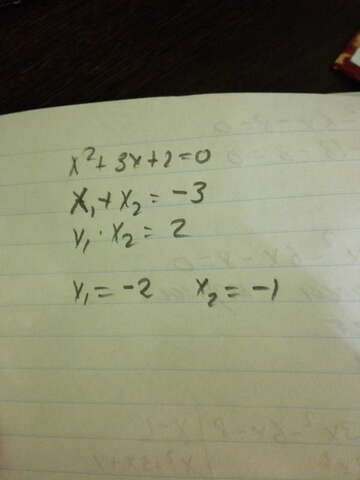 x²+3x+2=0
x₁+x₂=-3
x₁·x₂=2
x₁=-2 x₂=-1